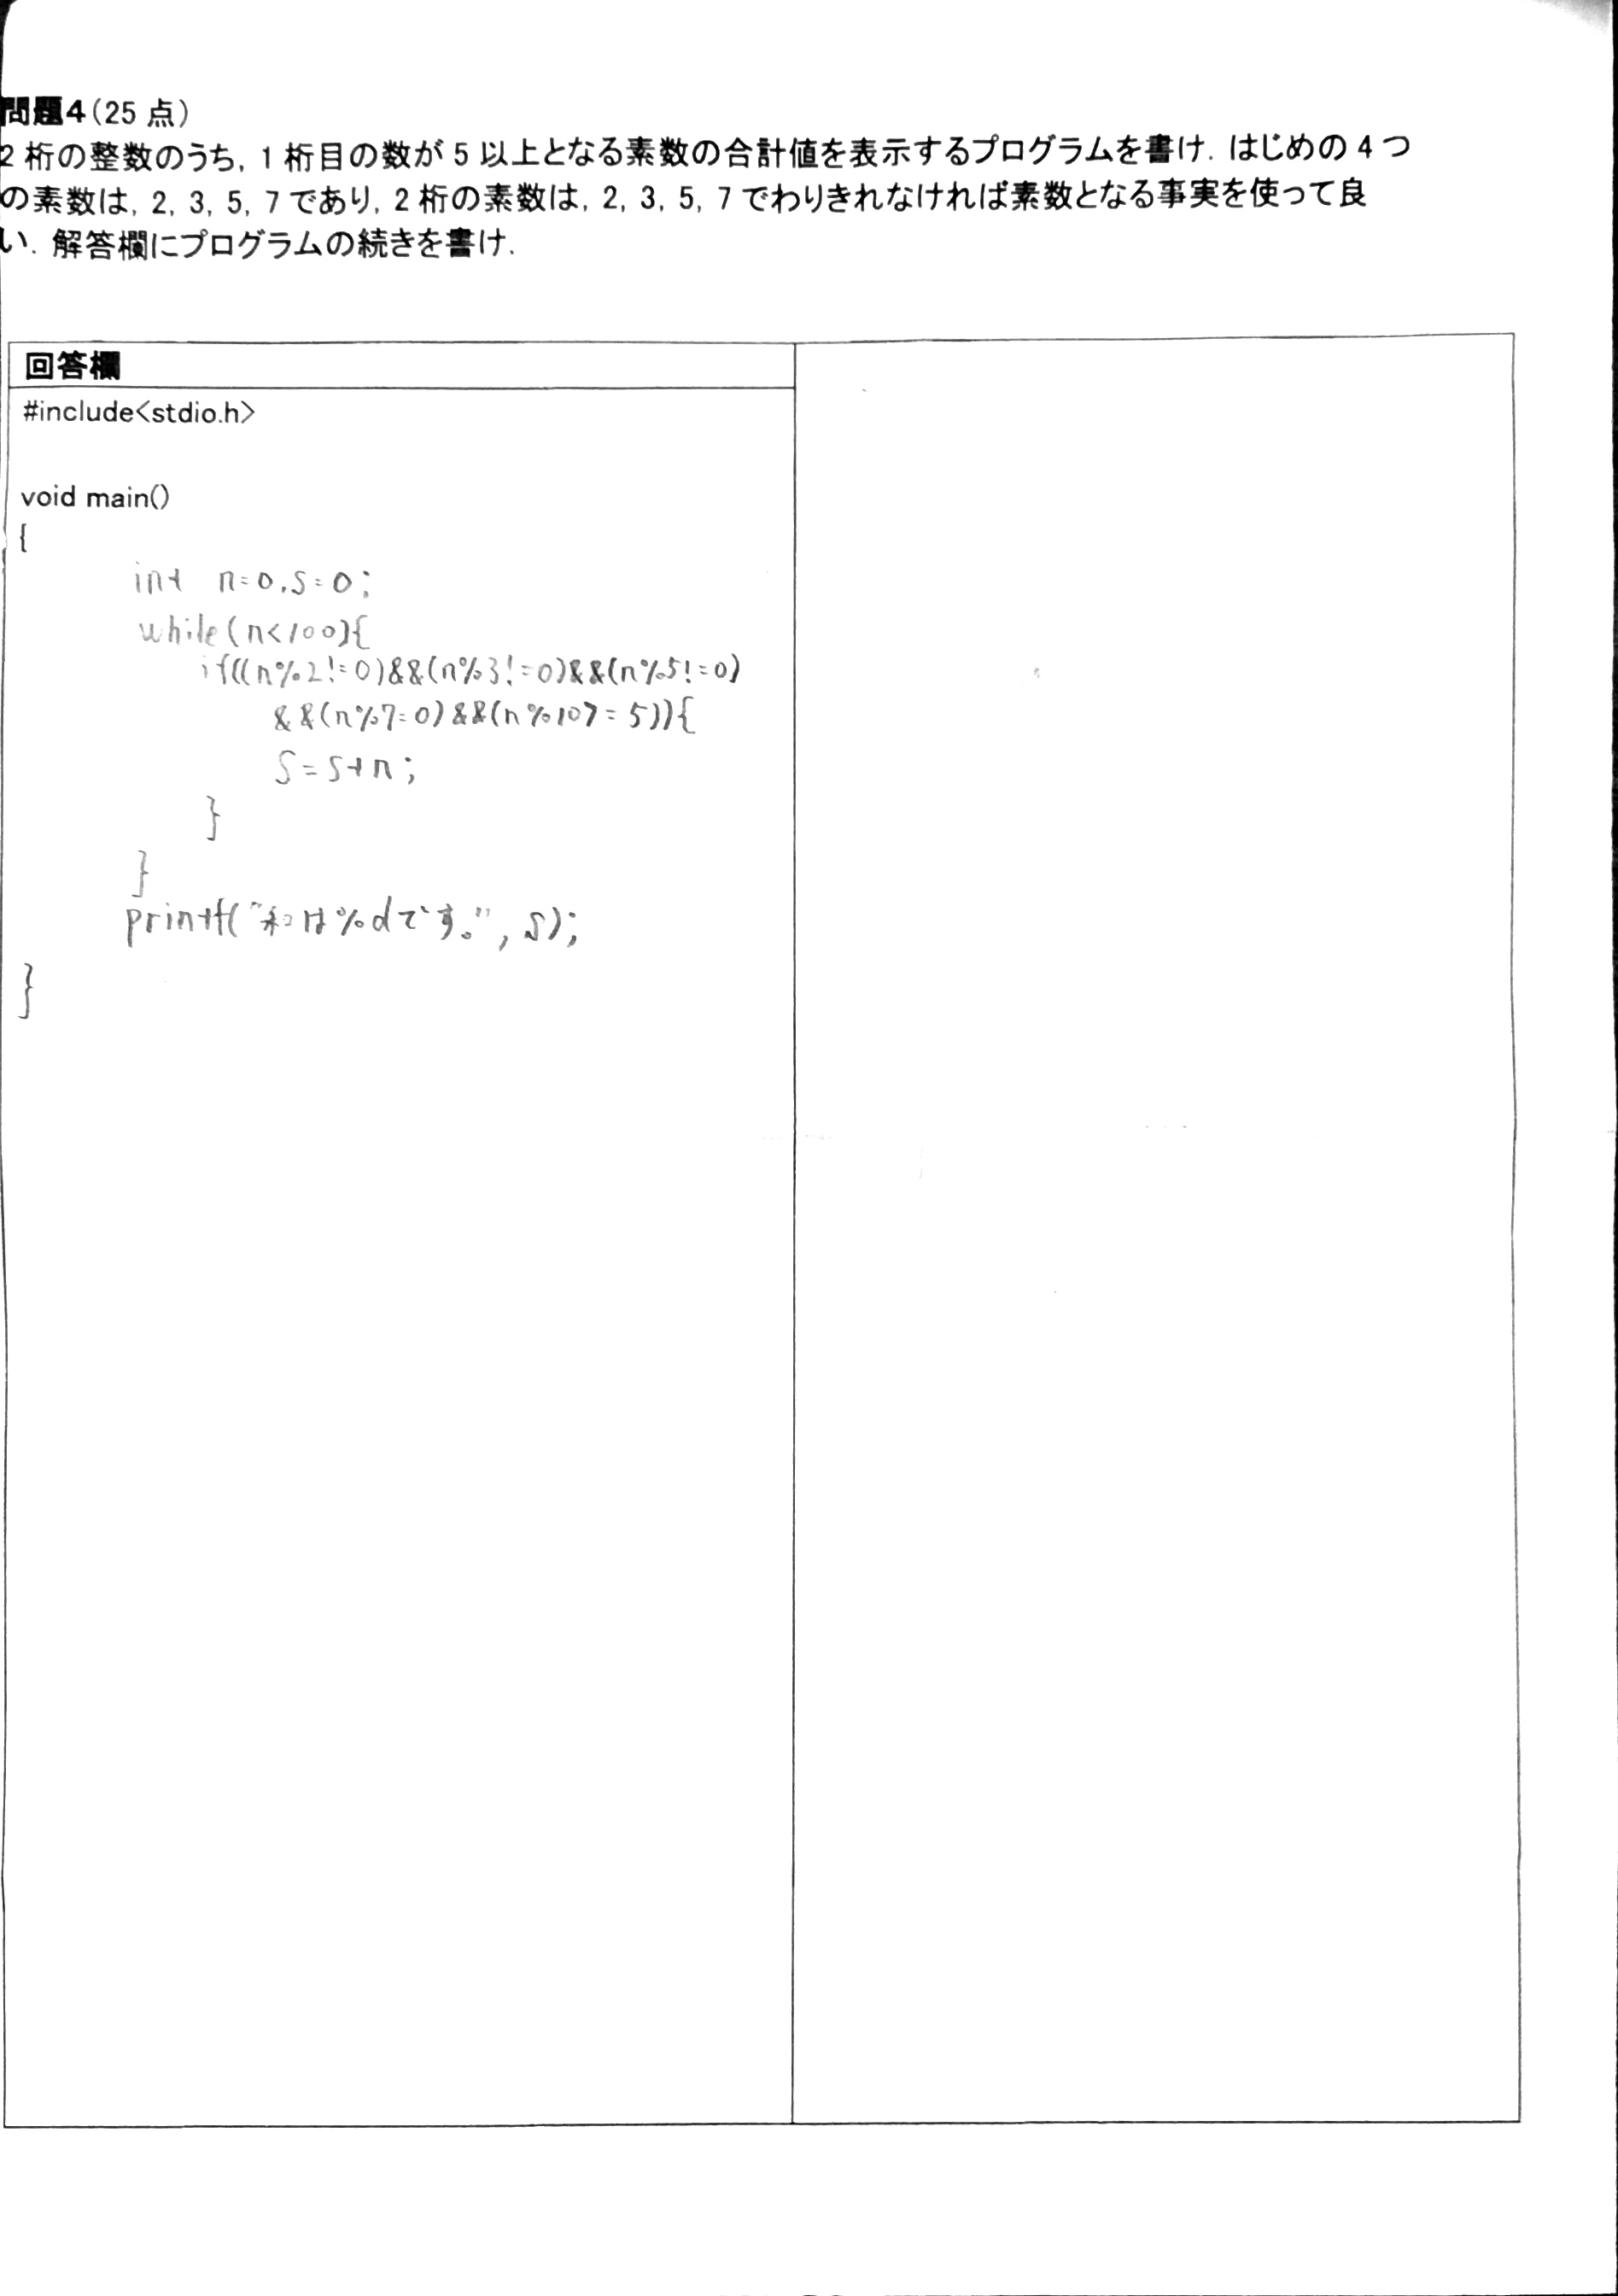 問題4(25 点)
2 桁の整数のうち, 1 桁目の数が 5 以上となる素数の合計値を表示するプログラムを書け. はじめの 4 つ
の素数は, 2, 3, 5, 7 であり, 2 桁の素数は, 2, 3, 5, 7 でわりきれなければ素数となる事実を使って良
い. 解答欄にプログラムの続きを書け.
回答欄
#include<stdio.h>
void main()
{
int n=0,s=0;
while(n<100){
if((n%2!=0)&&(n%3!=0)&&(n%5!=0)
&&(n%7=0)&&(n%10>=5)){
s=s+n;
}
}
printf("和は%dです。",s);
}